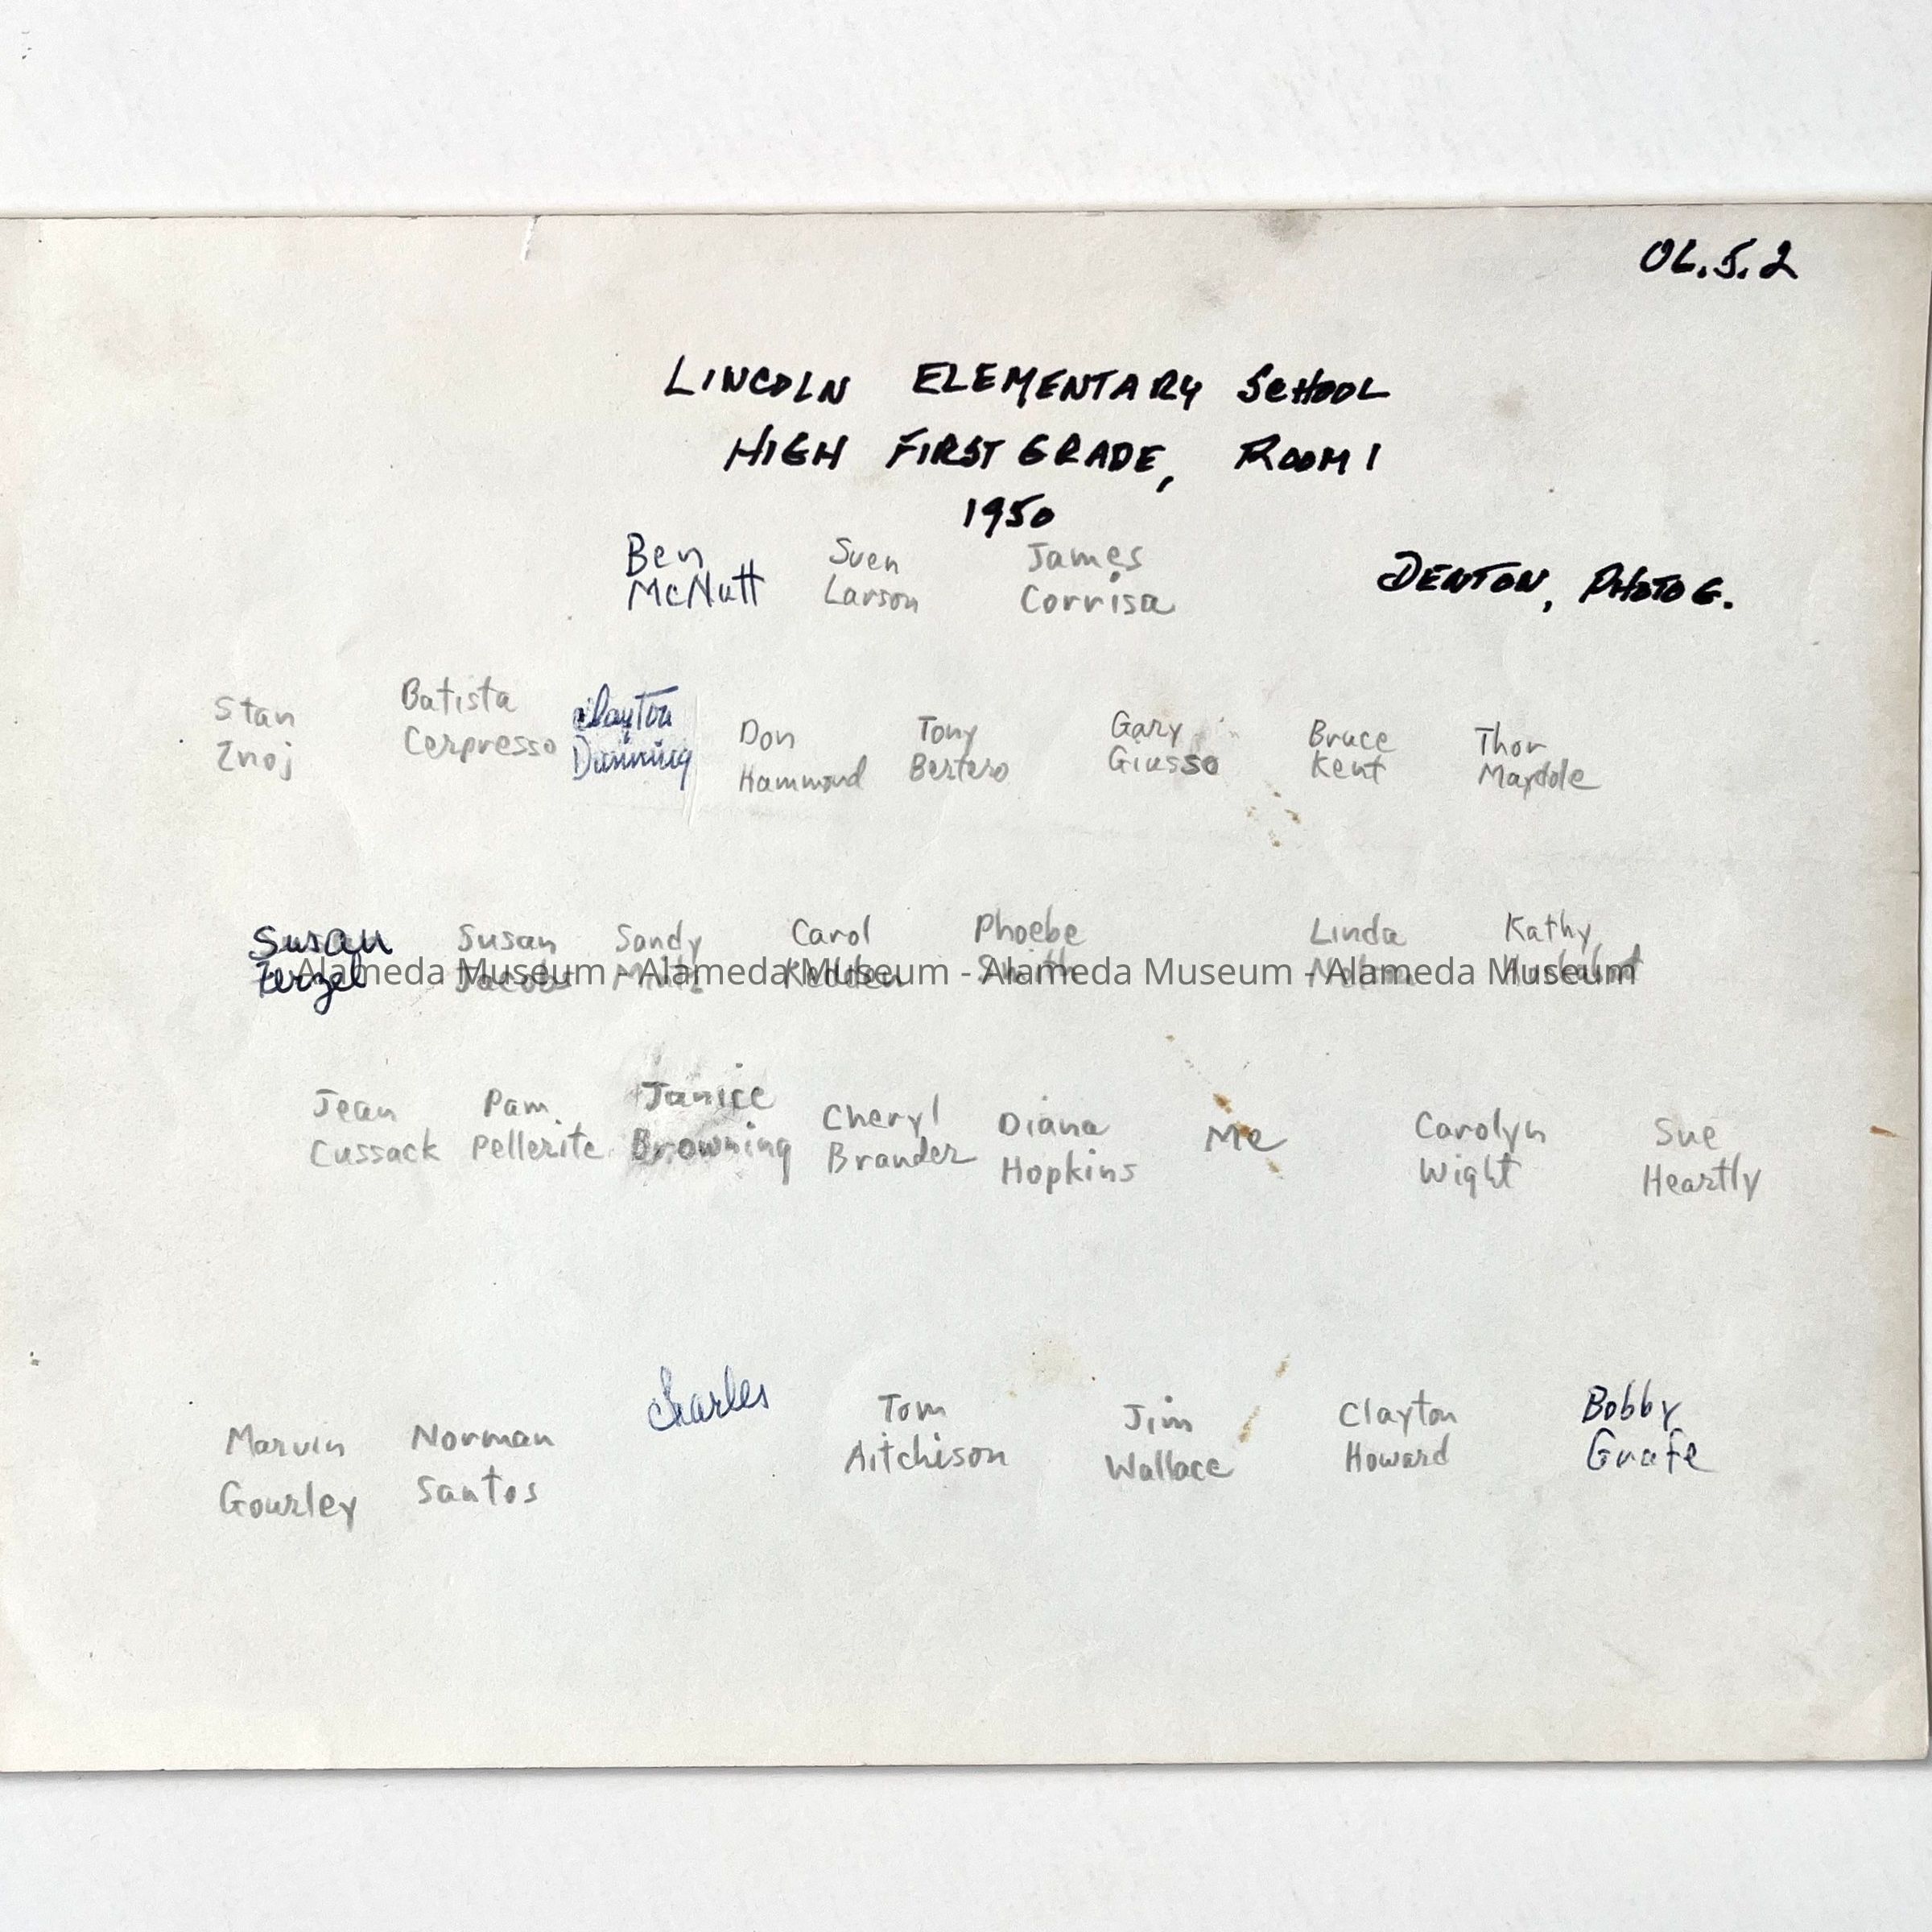 06.5.2
LINCOLN ELEMENTARY SCHOOL
HIGH FIRST GRADE, ROOM 1
1950
Ben Sven James
McNutt Larson Corrisa
DENTON, PHOTOG.
Stan Batista Clayton Don Tony Gary Bruce Thor
Znoj Cerpresso Dunning Hammond Bertero Giusso Kent Maydole
Susan Susan Sandy Carol Phoebe Linda Kathy
Jacobs Kedden Smith
Alameda Museum - Alameda Museum - Alameda Museum - Alameda Museum
Jean Pam Janice Cheryl Diana Me Carolyn Sue
Cussack Pellerite Browning Brander Hopkins Wight Heartly
Marvin Norman Charles Tom Jim Clayton Bobby
Gourley Santos Aitchison Wallace Howard